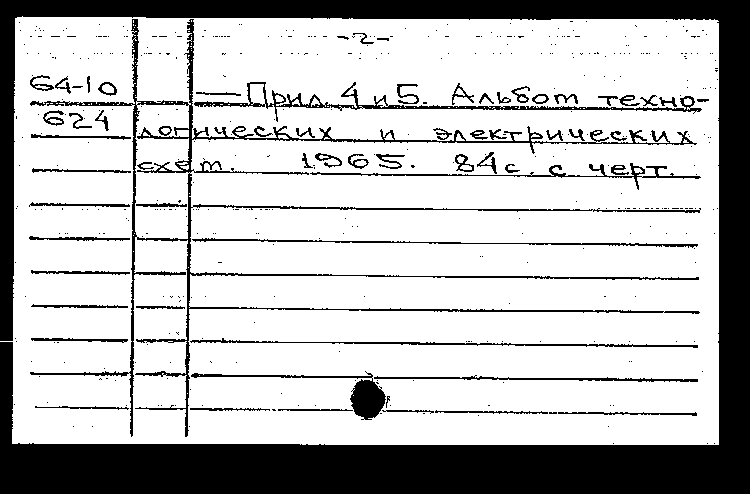 -2-
64-10 — Прил. 4 и 5. Альбом техно-
624 логических и электрических
схем. 1965. 84 с. с черт.